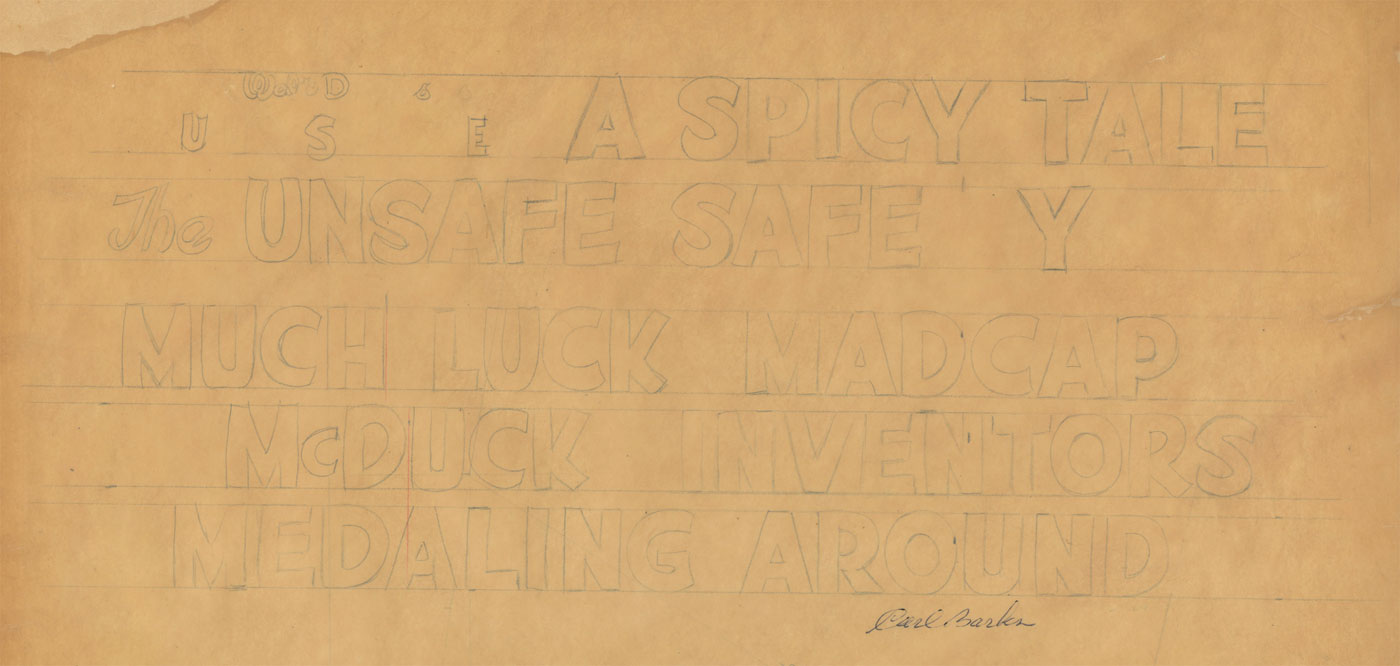 Walt D s A SPICY TALE
U S E
The UNSAFE SAFE Y
MUCH LUCK MADCAP
McDUCK INVENTORS
MEDALING AROUND
Carl Barks